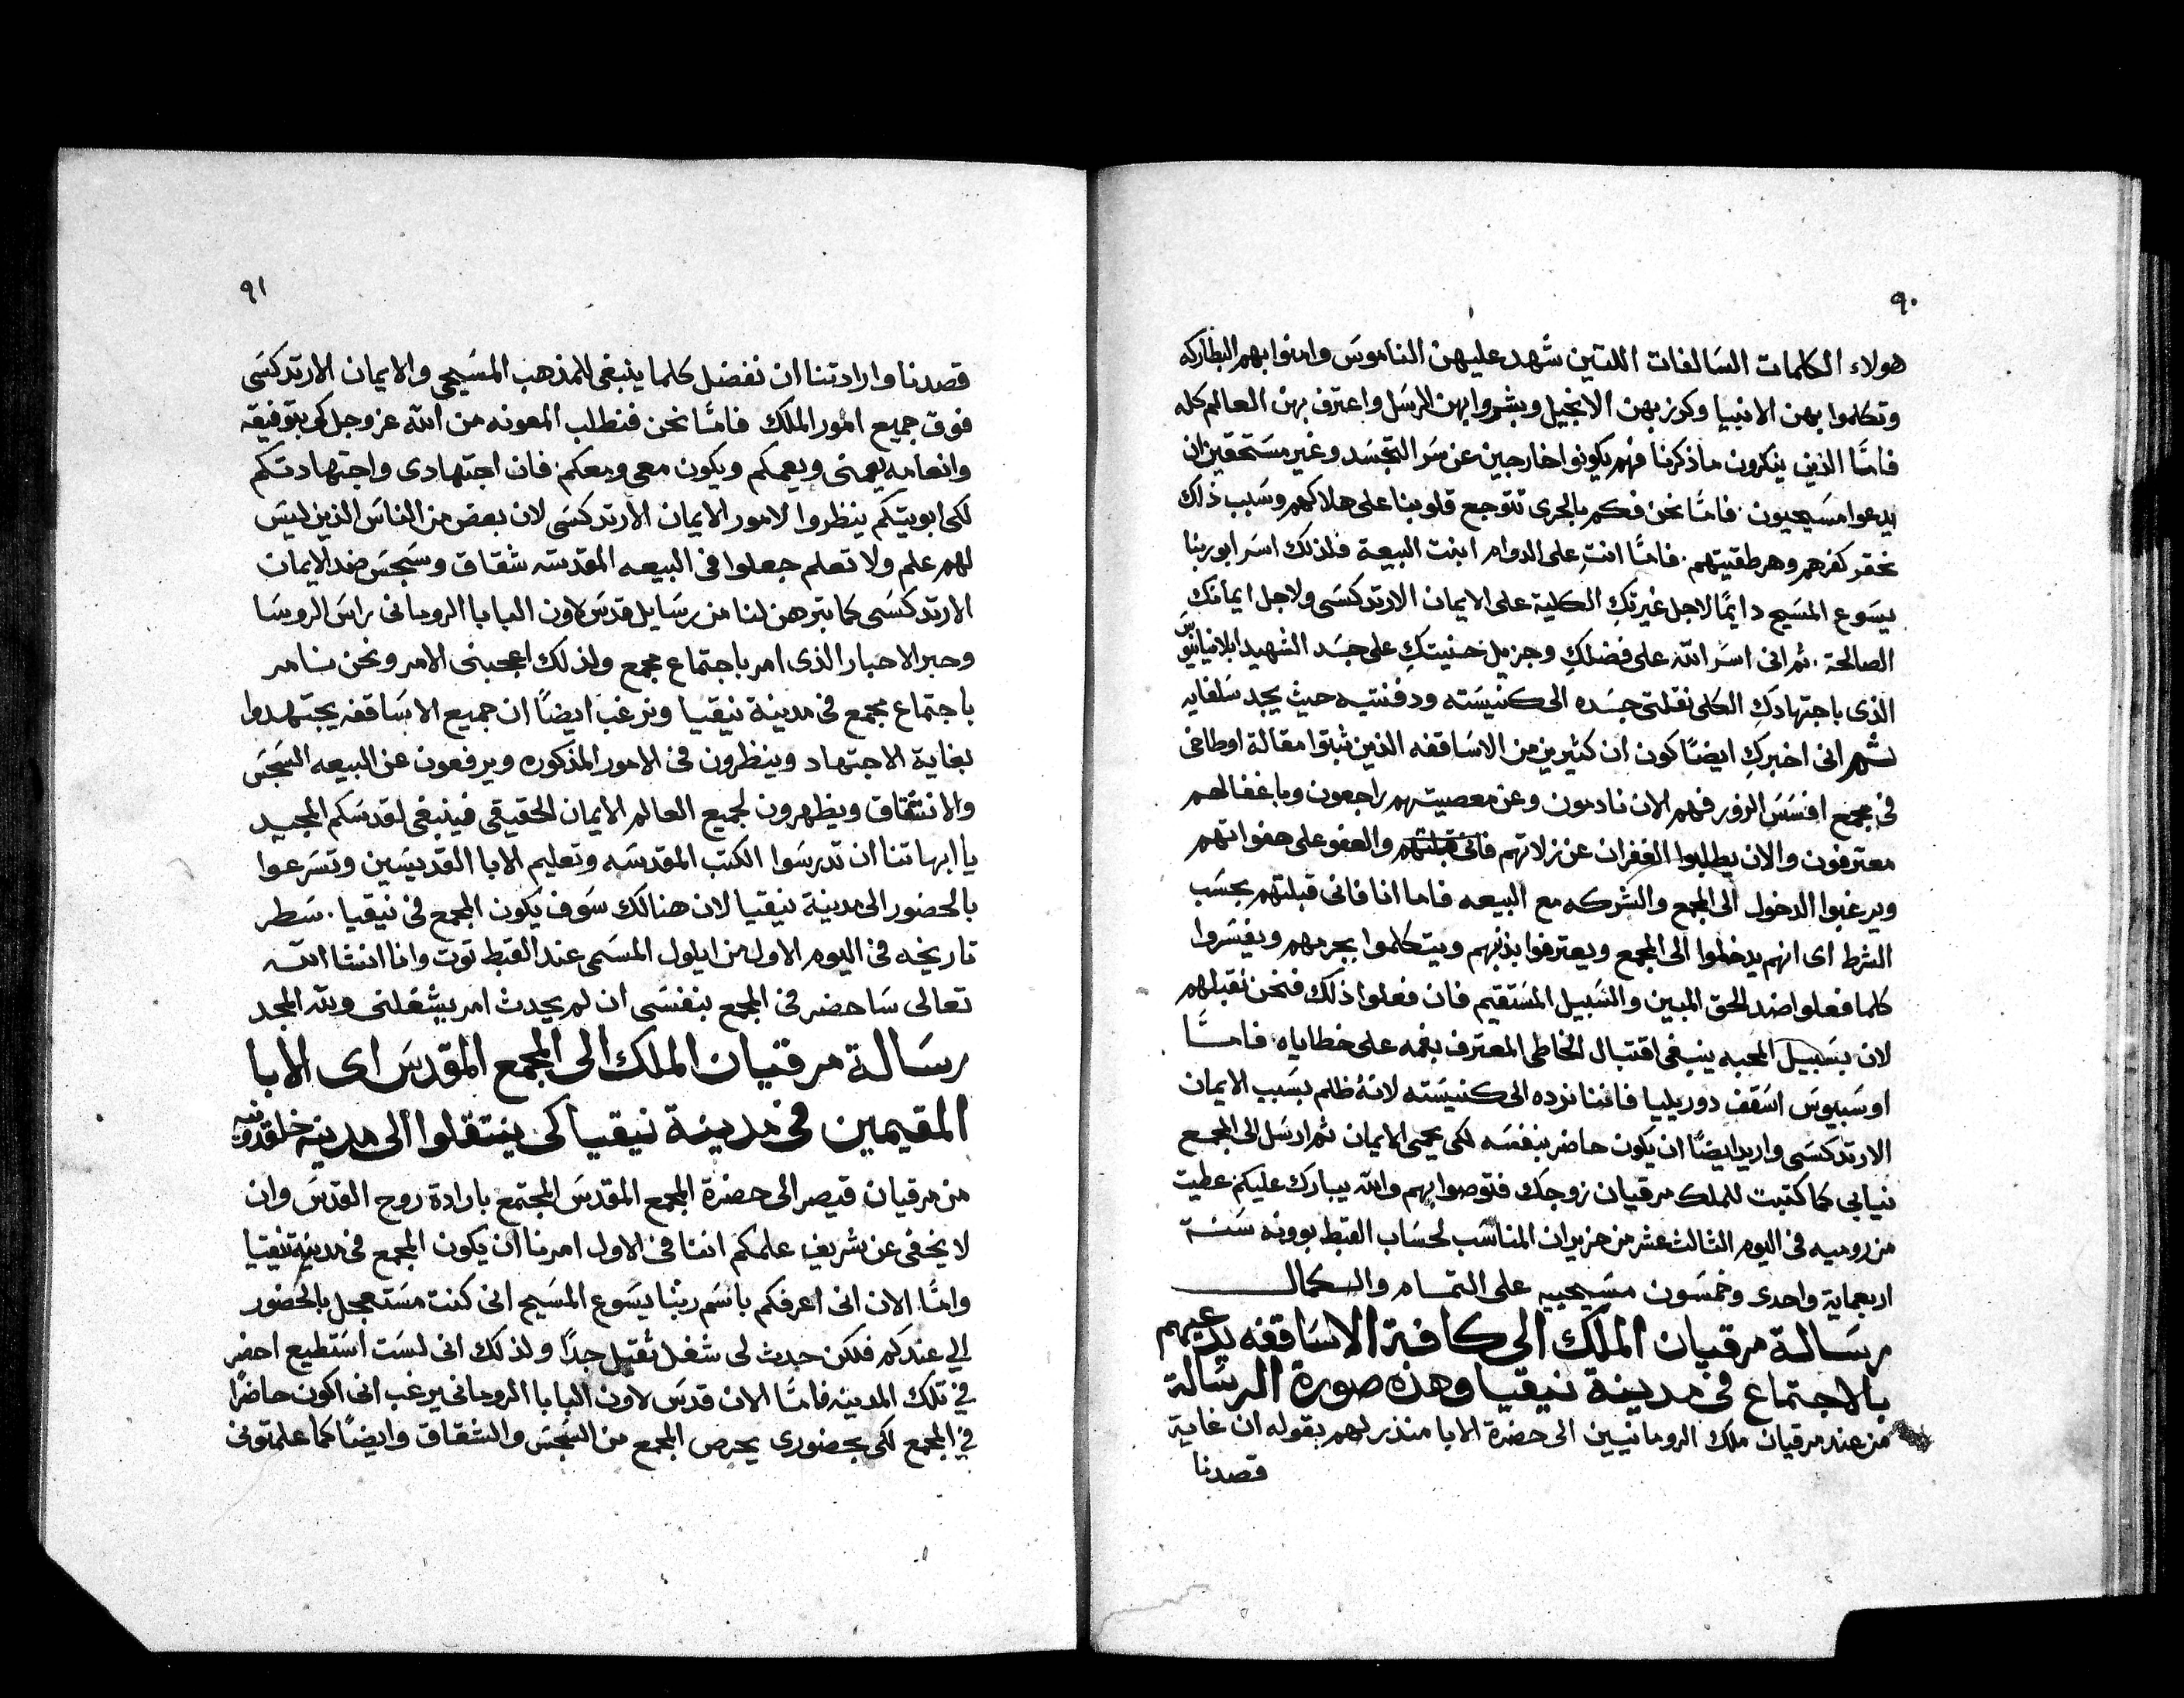 ٩٠
هولاء الكلمات السالفات اللتين شهد عليهن الناموس وامنوا بهم البطاركه
وتكلموا بهن الانبيا وكرز بهن الانجيل وبشروا بهن الرسل واعترف بهن العالم كله
فامّا الذين ينكرون ما ذكرنا فهم يكونوا خارجين عن سر التجسد وغير مستحقين ان
يدعوا مسيحيون. فامّا نحن فكم بالحرى تتوجع قلوبنا على هلاكهم وسبب ذلك
نحقر كفرهم وهرطقيتهم. فامّا انتِ على الدوام ابنت البيعة فلذلك اسر ابو ربنا
يسوع المسيح دايمًا لاجل غيرتكِ الكلية على الايمان الارتدكسى ولاجل ايمانكِ
الصالحة. ثم انى اسر الله على فضلكِ وجزيل حنيتكِ على جسد الشهيد ابلانيانيوس
الذى باجتهادكِ الكلى نقلتى جسده الى كنيسته ودفنتيه حيث يجد سلفايه
ثم انى اخبركِ ايضًا كون ان كثيرين من الاساقفه الذين ثبتوا مقالة اوطاخى
فى مجمع افسس الزور فهم الان نادمون وعن معصيتهم راجعون وباغفالهم
معترفون والان يطلبوا الغفران عن زلاتهم فانى قبلتهم والعفو على هفواتهم
ويرغبوا الدخول الى المجمع والشركه مع البيعه فاما انا فانى قبلتهم بحسب
الشرط اى انهم يدخلوا الى المجمع ويعترفوا بذنبهم ويتكلموا بجرمهم ويفسروا
كلما فعلوا ضد الحق المبين والسبيل المستقيم فان فعلوا ذلك فنحن نقبلهم
لان بسبيل المحبه ينبغى اقتبال الخاطى المعترف بفمه على خطاياه فامّا
اوسبيوس اسقف دوريليا فاننا نرده الى كنيسته لانهُ ظلم بسبب الايمان
الارتدكسى واريد ايضًا ان يكون حاضر بنفسه لكى يحيى الايمان ثم ارسل الى المجمع
نيابى كما كتبت للملك مرقيان زوجك فتوصوا بهم والله يبارك عليكم عطيت
من روميه فى اليوم الثالث عشر من حزيران المناسب لحساب القبط بوونه سنة
اربعماية واحدى وخمسون مسيحييه على التمام والكمال
رسالة مرقيان الملك الى كافة الاساقفه يدعيهم
بالاجتماع فى مدينة نيقيا وهذه صورة الرسالة
من عند مرقيان ملك الرومانيين الى حضرة الابا منذر لهم بقوله ان غاية
قصدنا
٩١
قصدنا وارادتنا ان نفضل كلما ينبغى للمذهب المسيحى والايمان الارتدكسى
فوق جميع امور الملك فامّا نحن فنطلب المعونه من الله عز وجل كى بتوفيقه
وانعامه يعمنى ويعمكم ويكون معى ومعكم. فان اجتهادى واجتهادتكم
لكى ابويتكم ينظروا لامور الايمان الارتدكسى لان بعض من الناس الذين ليس
لهم علم ولا تعلم جعلوا فى البيعه المقدسه شقاق وسجس ضد الايمان
الارتدكسى كما تبرهن لنا من رسايل قدس لاون البابا الرومانى راس الروسا
وحبر الاحبار الذى امر باجتماع مجمع ولذلك اعجبنى الامر ونحن نامر
باجتماع مجمع فى مدينة نيقيا ونرغب ايضًا ان جميع الاساقفه يجتهدوا
بغاية الاجتهاد وينظرون فى الامور المذكوره ويرفعون عن البيعه السجس
والانشقاق ويظهرون لجميع العالم الايمان الحقيقى فينبغى لقدسكم المجيد
يا ابهاتنا ان تدرسوا الكتب المقدسه وتعليم الابا القديسين وتسرعوا
بالحضور الى مدينة نيقيا لان هنالك سوف يكون المجمع فى نيقيا. سطر
تاريخه فى اليوم الاول من ايلول المسمى عند القبط توت وانا انشا الله
تعالى ساحضر فى المجمع بنفسى ان لم يحدث امر يشغلنى ولله المجد
رسالة مرقيان الملك الى المجمع المقدس اى الابا
المقيمين فى مدينة نيقيا كى ينتقلوا الى مدينه خلقدونيه
من مرقيان قيصر الى حضرة المجمع المقدس المجتمع بارادة روح القدس وان
لا يخفى عن شريف علمكم اننا فى الاول امرنا ان يكون المجمع فى مدينة نيقيا
وامّا الان انى اعرفكم باسم ربنا يسوع المسيح انى كنت مستعجل بالحضور
الي عندكم فلكن حدث لى شغل ثقيل جدًا ولذلك انى لست استطيع احضر
في تلك المدينه فامّا الان قدس لاون البابا الرومانى يرغب انى اكون حاضرًا
في المجمع لكى بحضورى يحرص المجمع من السجس والشقاق وايضًا كما علمتونى